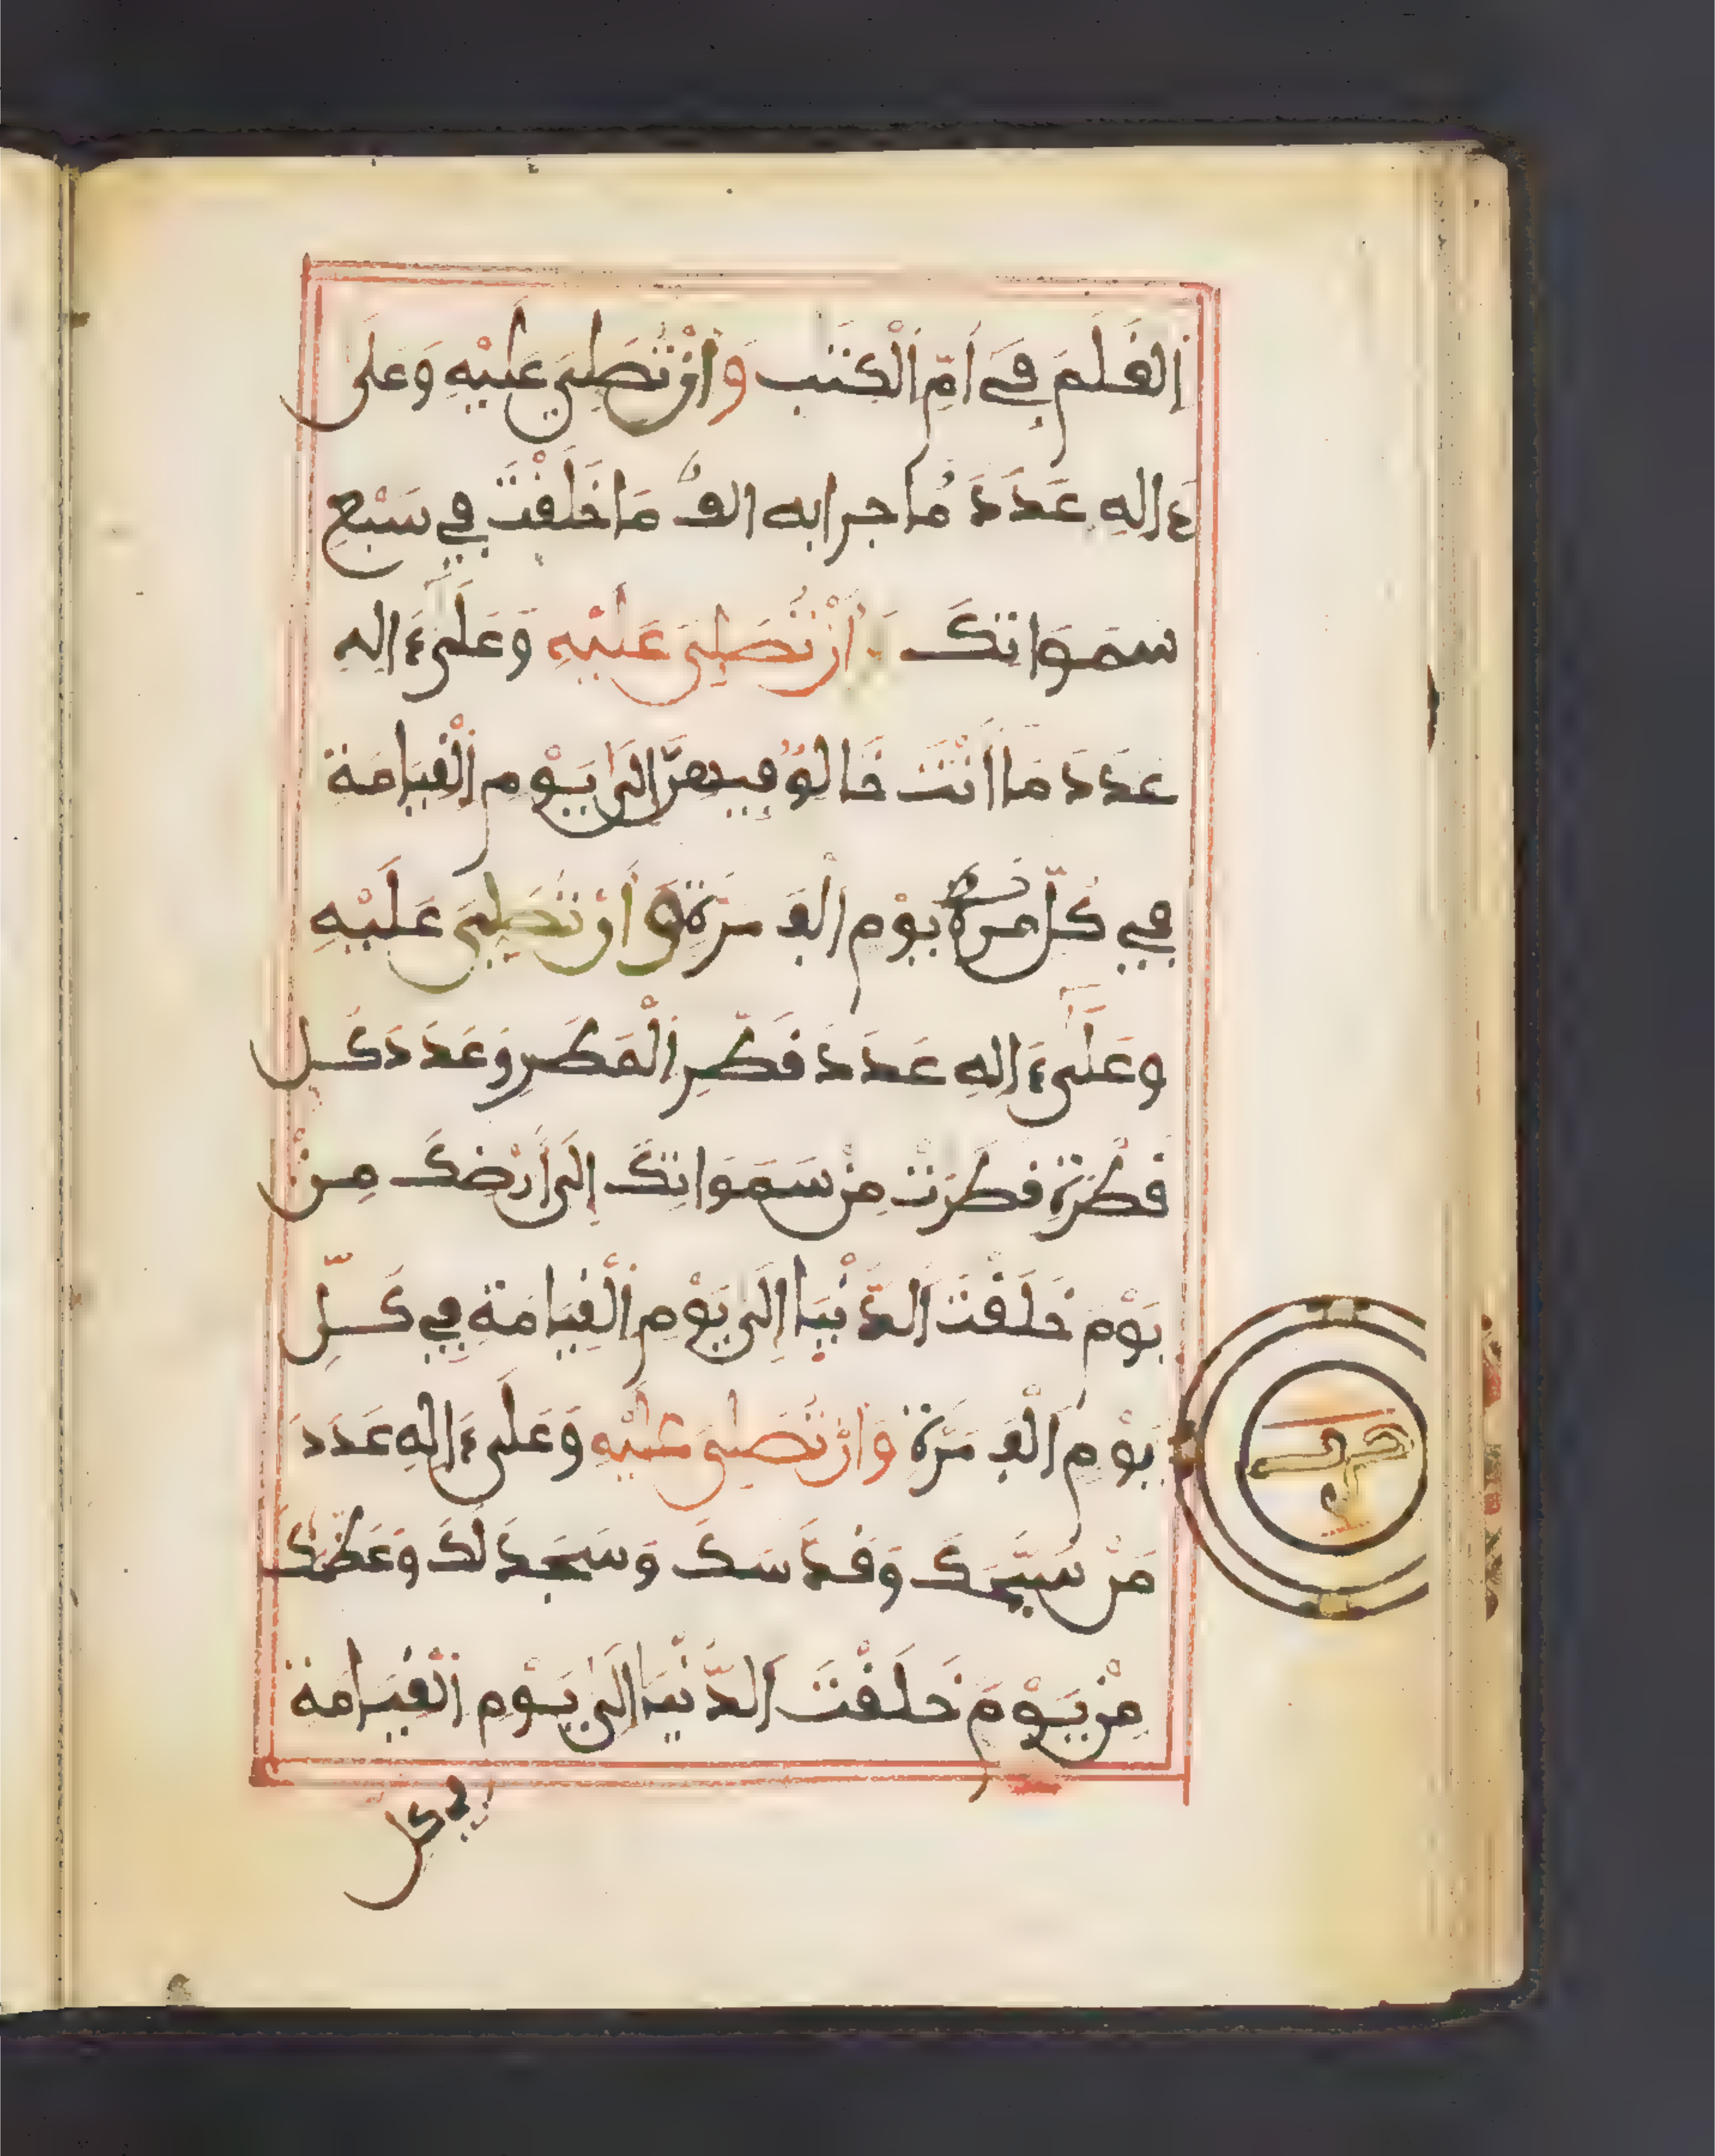 اَلْقَلَمُ فِي أُمِّ اَلْكِتَٰبِ وَأَنْ تُصَلِّيَ عَلَيْهِ وَعَلَىٰ
ءَالِهِ عَدَدَ مَا جرا به الف مَا خَلَقْتَ فِي سَبْعِ
سَمَوَاتِكَ وَأَنْ تُصَلِّيَ عَلَيْهِ وَعَلَىٰ ءَالِهِ
عَدَدَ مَا أَنْتَ خَالِقُ فِيهِنَّ إِلَىٰ يَوْمِ اَلْقِيَامَةِ
فِي كُلِّ يَوْمٍ اَلْفَ مَرَّةٍ وَأَنْ تُصَلِّيَ عَلَيْهِ
وَعَلَىٰ ءَالِهِ عَدَدَ قَطْرِ اَلْمَطَرِ وَعَدَدَ كُلِّ
قَطْرَةٍ قَطَرَتْ مِنْ سَمَوَاتِكَ إِلَىٰ أَرْضِكَ مِنْ
يَوْمَ خَلَقْتَ اَلدُّنْيَا إِلَىٰ يَوْمِ اَلْقِيَامَةِ فِي كُلِّ
يَوْمٍ اَلْفَ مَرَّةٍ وَأَنْ تُصَلِّيَ عَلَيْهِ وَعَلَىٰ ءَالِهِ عَدَدَ
مَنْ سَبَّحَكَ وَقَدَّسَكَ وَسَجَدَ لَكَ وَعَظَّمَكَ
مِنْ يَوْمَ خَلَقْتَ اَلدُّنْيَا إِلَىٰ يَوْمِ اَلْقِيَامَةِ
في كل